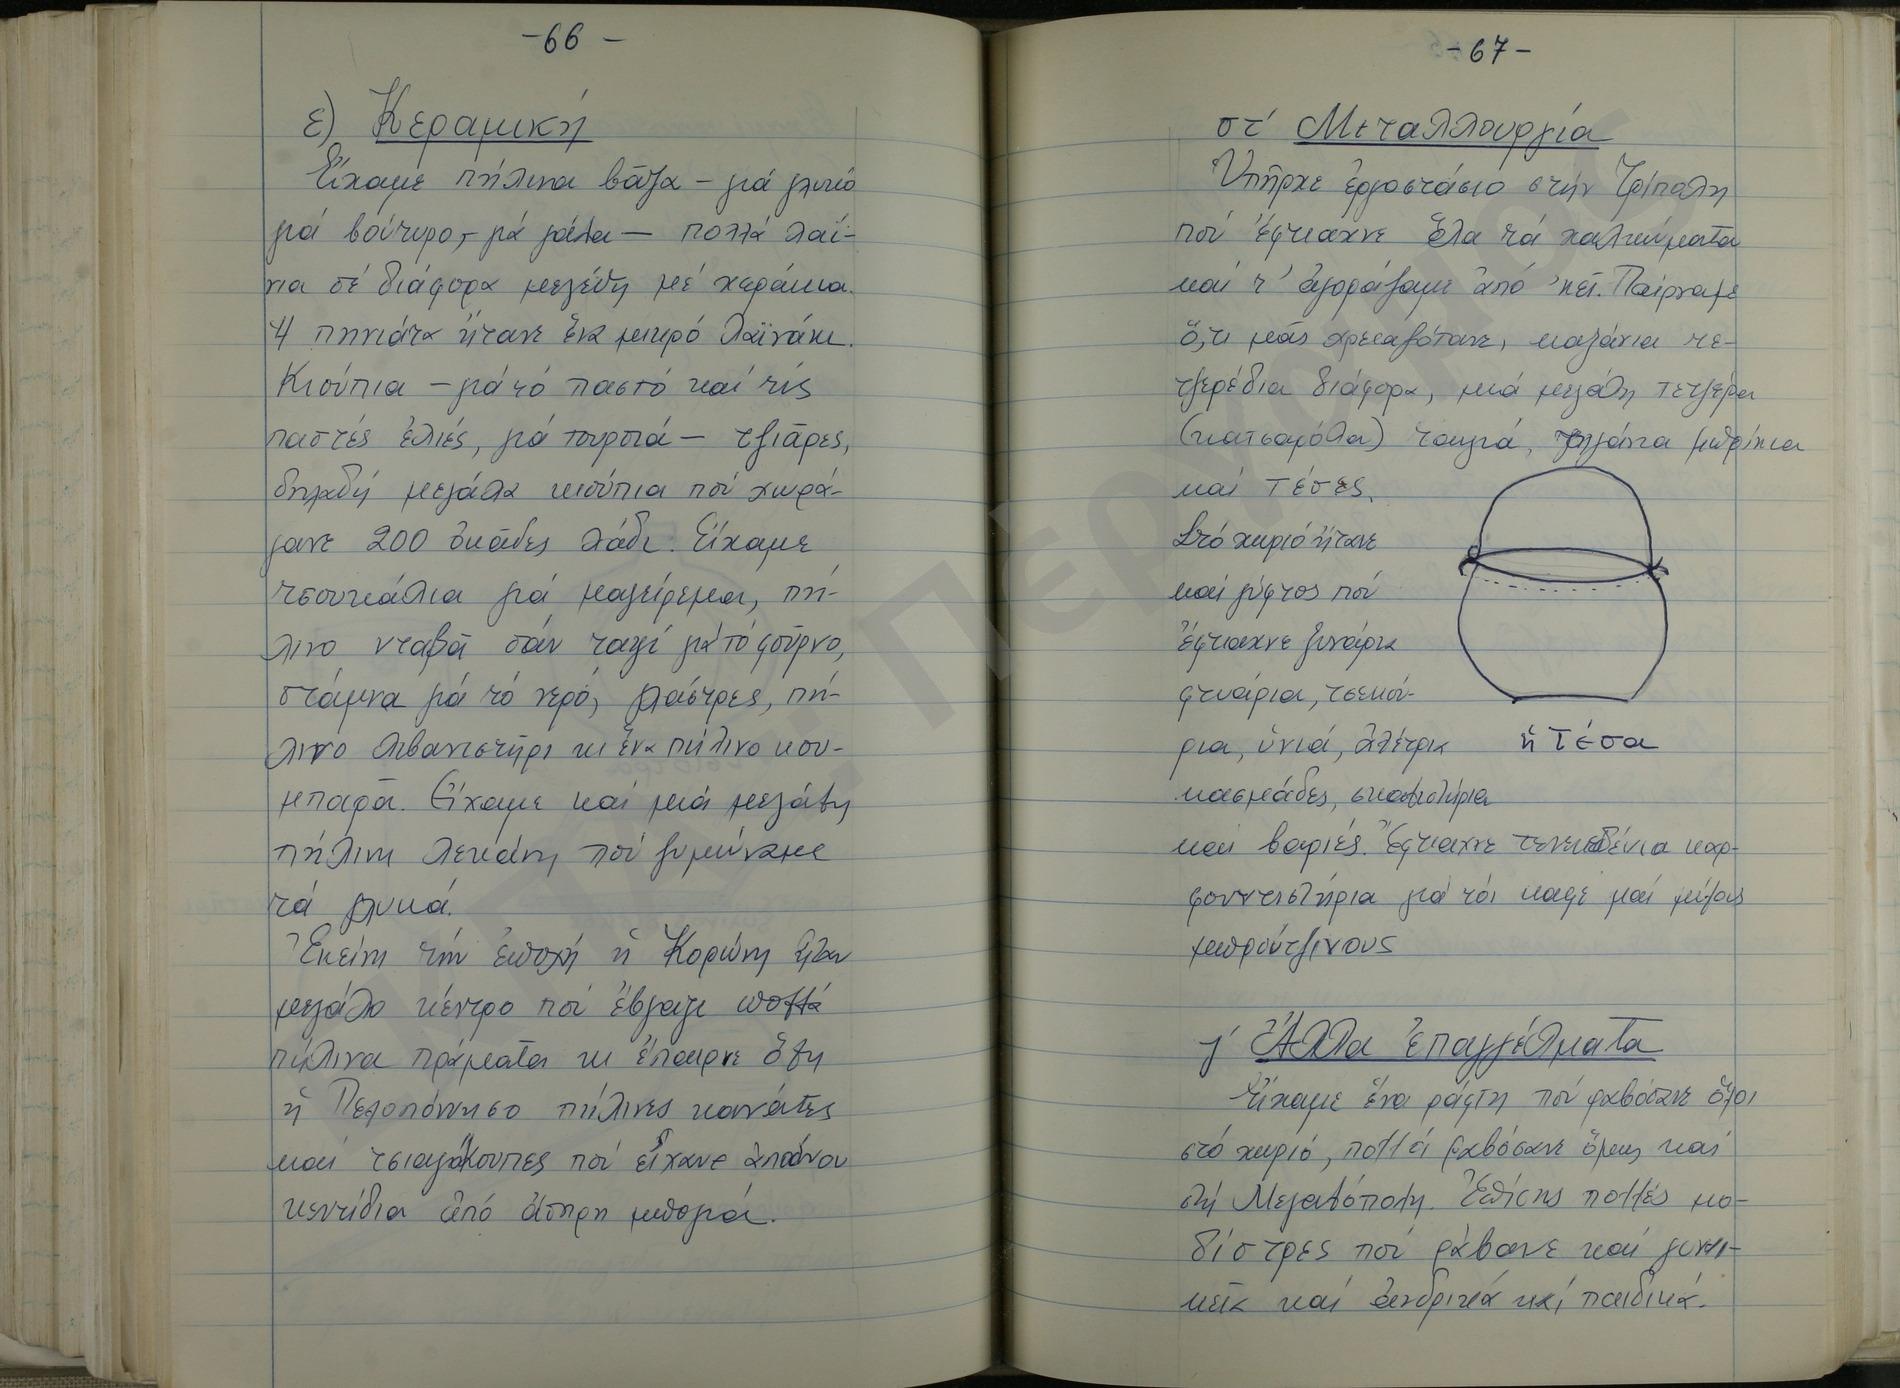 -66-
ε) Κεραμική
Εἴχαμε πήλινα βάζα - γιά γλυκό
γιά βούτυρο, γιά γάλα - πολλά λαΐ-
νια σέ διάφορα μεγέθη μέ χεράκια.
Ἡ πηνιάτα ἤτανε ἕνα μικρό λαϊνάκι.
Κιούπια - γιά τό παστό καί τίς
παστές ἐλιές, γιά τουρσιά - τζιᾶρες,
δηλαδή μεγάλα κιούπια πού χωρά-
γανε 200 ὀκάδες λάδι. Εἴχαμε
τσουκάλια γιά μαγείρεμα, πή-
λινο νταβᾶ σάν ταψί γιά τό φοῦρνο,
στάμνα γιά τό νερό, γλάστρες, πή-
λινο λιβανιστήρι κι ἕνα πήλινο κου-
μπαρᾶ. Εἴχαμε καί μιά μεγάλη
πήλινη λεκάνη πού ζυμώναμε
τά γλυκά.
Ἐκείνη τήν ἐποχή ἡ Κορώνη ἦταν
μεγάλο κέντρο πού ἔβγαζε πολλά
πήλινα πράματα κι ἔπαιρνε ὅλη
ἡ Πελοπόννησο πήλινες κανάτες
καί πού εἴχανε ἀπάνου
κεντίδια ἀπό ἄσπρη μπογιά.
-67-
στ' Μεταλλουργία
Ὑπῆρχε ἐργοστάσιο στήν Τρίπολη
πού ἔφτιαχνε ὅλα τά χαλκώματα
καί τ' ἀγοράζαμε ἀπό 'κεῖ. Παίρναμε
ὅ,τι μᾶς χρειαζότανε, καζάνια τε-
τζερέδια διάφορα, μιά μεγάλη τετζέρα
(κατσαρόλα) ταψιά, τηγάνια μπρίκια
καί τέσες.
Στό χωριό ἤτανε
καί γύφτος πού
ἔφτιαχνε ξυνάρια
φτυάρια, τσεκού-
ρια, ὑνιά, ἀλέτρια
ἡ τέσα
κασμάδες, σκαλιστήρια
καί βαριές. Ἔφτιαχνε τενεκεδένια καβ-
φουντιστήρια γιά τόν καφέ καί μύλους
μπρούτζινους
ζ' Ἄλλα ἐπαγγέλματα
Εἴχαμε ἕνα ράφτη πού ραβότανε ὅλοι
στό χωριό, πολλοί ραβόσανε ὅμως καί
στή Μεγαλόπολη. Ἐπίσης πολλές μο-
δίστρες πού ράβανε καί γυναι-
κεῖα καί ἀνδρικά καί παιδικά.